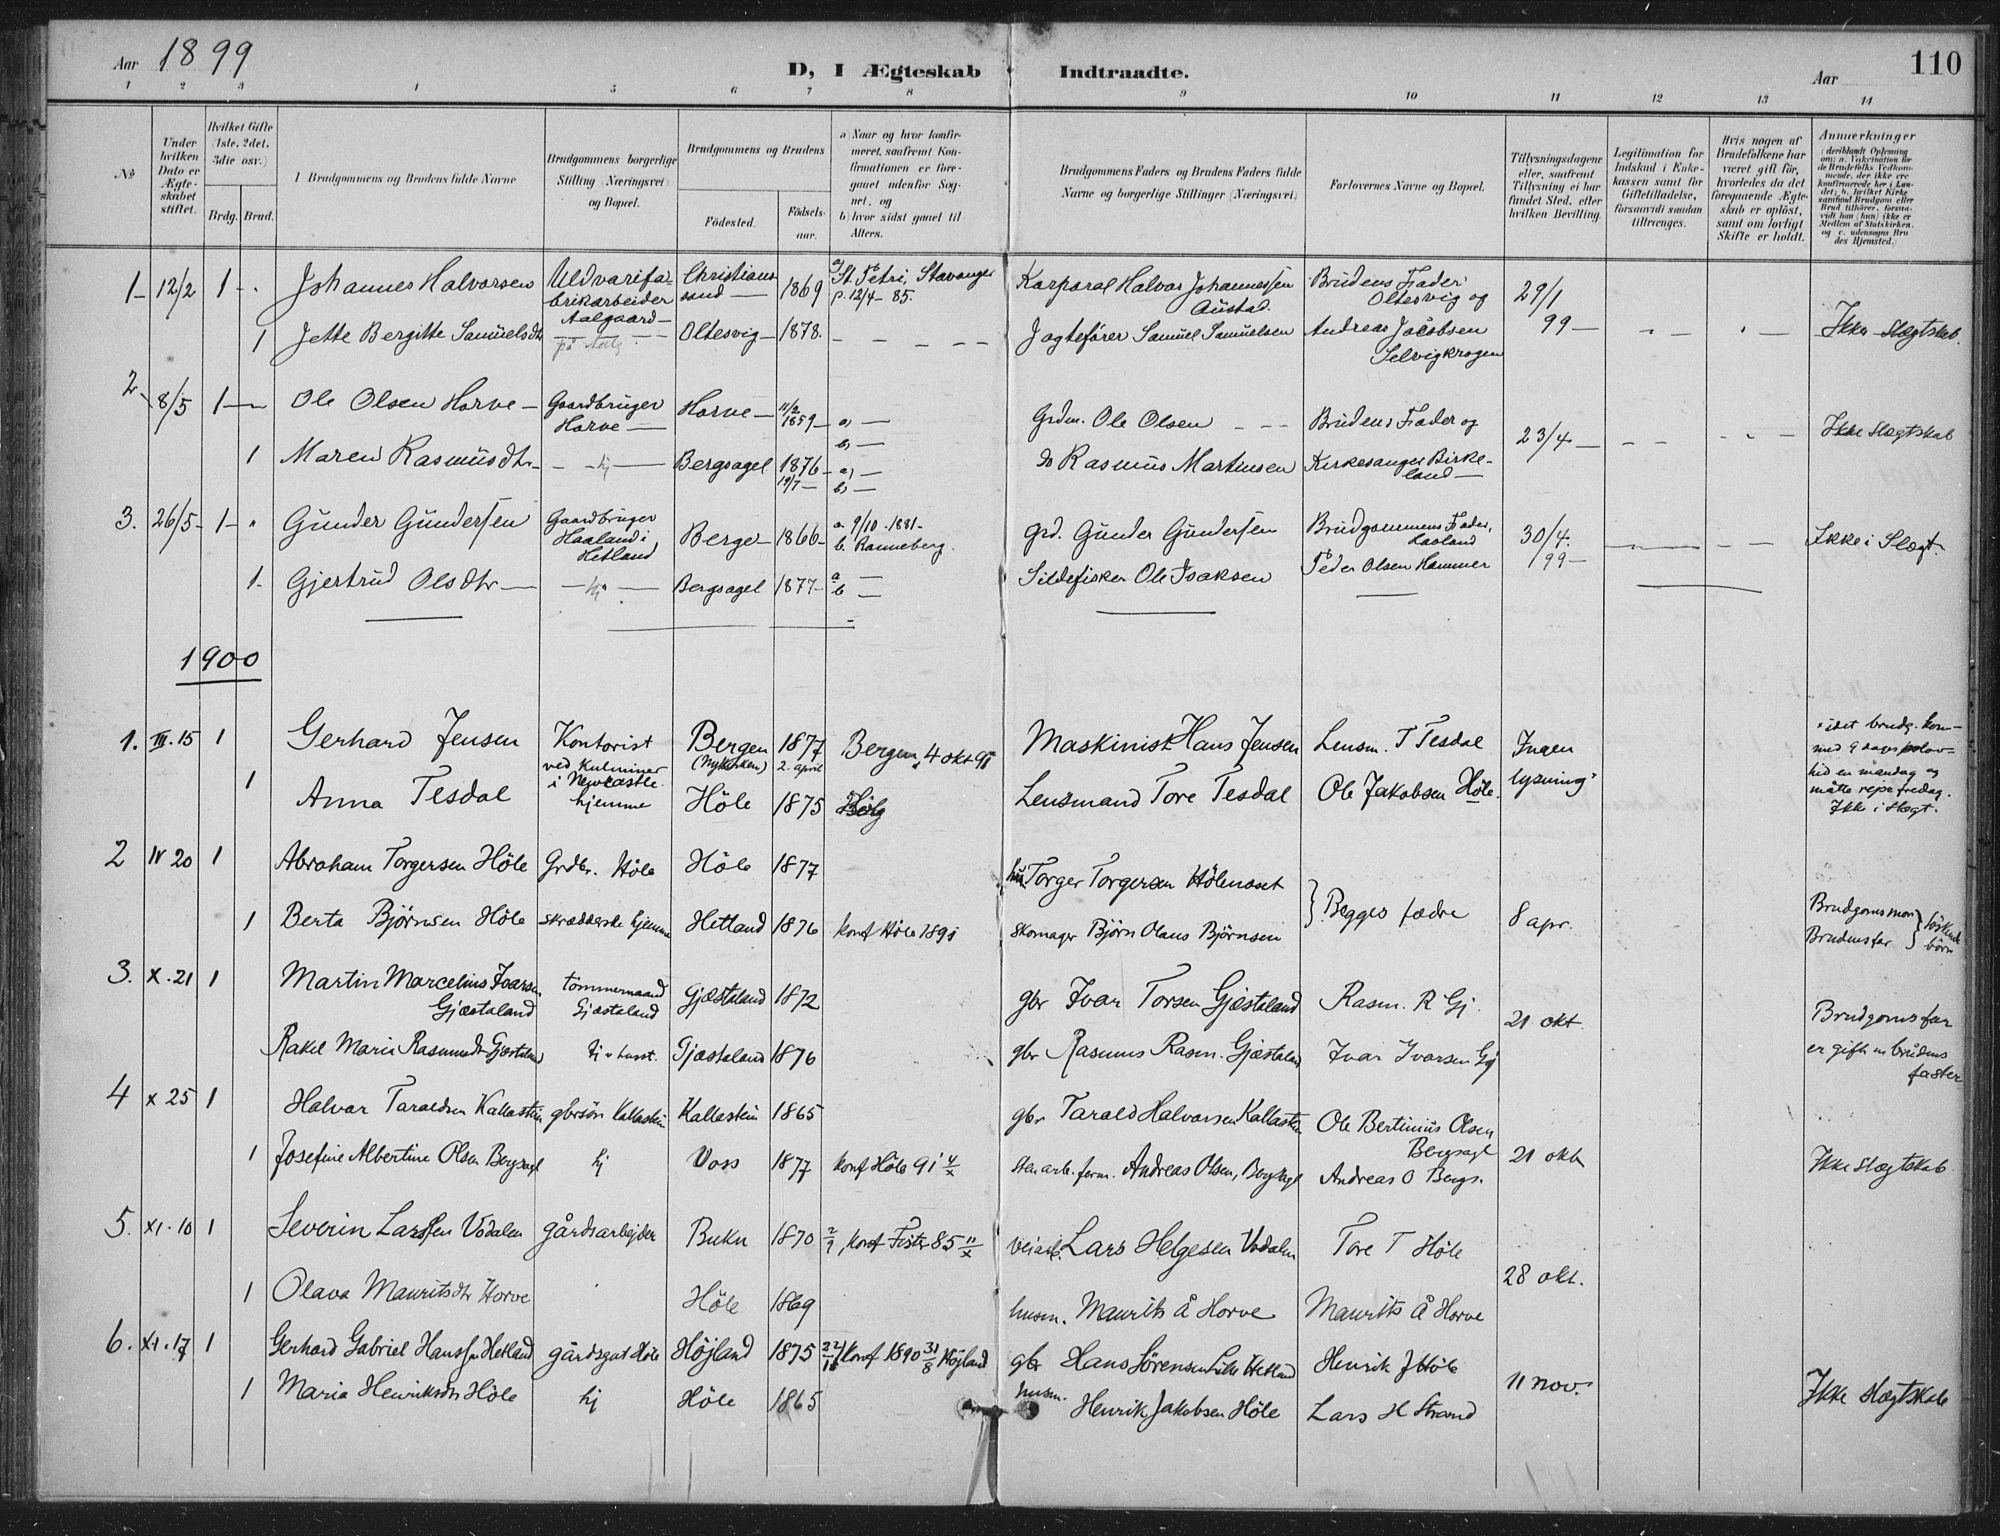 Aar 1899
D, I Ægteskab Indtraadte.
Aar
110
1 2 3 4 5 6 7 8 9 10 11 12 13 14
№
Under hvilken Dato er Ægteskabet stiftet.
Hvilket Gifte (1ste, 2det, 3die osv.)
Brdg. Brud.
Brudgommens og Brudens fulde Navne
Brudgommens borgerlige Stilling (Næringsvei) og Bopæl.
Brudgommens og Brudens
Födested.
Födselsaar.
a) Naar og hvor konfirmeret, saafremt Konfirmationen er foregaaet udenfor Sognet, og
b) hvor sidst gaaet til Alters.
Brudgommens Faders og Brudens Faders fulde Navne og borgerlige Stillinger (Næringsvei)
Forlovernes Navne og Bopæl.
Tillysningsdagene eller, saafremt Tillysning ei har fundet Sted, efter hvilken Bevilling.
Legitimation for Indskud i Enkekassen samt for Giftetilladelse, forsaavidt saadan tiltrænges.
Hvis nogen af Brudefolkene har været gift för, hvorledes da det foregaaende Ægteskab er oplöst, samt om lovligt Skifte er holdt.
Anmærkninger
1- 12/2 1 - Johannes Halvorsen Uldvarefabrikarbeider Aalgaard Christianssand 1869 St. Petri, Stavanger 12/4-85. Korporal Halvor Johannessen Austad. Brudens Fader Oltesvig og 29/1
1 Jette Bergitte Samuelsdtr Oltesvig 1878. Jagtefører Samuel Samuelsen Andreas Jacobsen Selvigkrogen 99 Ikke Slægtskab.
2 8/5 1 Ole Olsen Horve Gaardbruger Horve Horve 11/2 1859 a) b) Grdm. Ole Olsen Brudens Fader og 23/4 Ikke Slægtskab
1 Maren Rasmusdtr hj Bergsagel 1876 19/7 a) b) Do Rasmus Martinsen Kirkesanger Birkeland
3. 26/5 1 Gunder Gundersen Gaardbruger Haaland i Hetland Berge 1866 a 9/10-1881 b. Ranneberg. grd. Gunder Gundersen Brudgommens Fader, Haaland 30/4. Ikke i Slægt.
1. Gjertrud Olsdtr hj Bergsagel 1877 a b Sildefisker Ole Isaksen Peder Olsen Hammer 99
1900
1. III.15 1 Gerhard Jensen Kontorist ved Kulminer i Newcastle Bergen (Nykirken) 1877 2. april Bergen, 4 okt 91 Maskinist Hans Jensen Lensm. T Tesdal Ingen lysning idet brudg. kom med 9 dages
1 Anna Tesdal hjemme Höle 1875 Lensmand Tore Tesdal Ole Jakobsen Höle. hid en mandag og måtte reise fredag. Ikke i Slægt.
2 IV 20 1 Abraham Torgersen Höle Grdbr. Höle Höle 1877 Torger Torgersen Hölenæset Begges fædre 8 apr. Brudgoms mor
1 Berta Bjørnsen Höle skrædderske hjemme Hetland 1876 konf Höle 1891 Skomager Bjørn Olaus Bjørnsen Brudens far söskendebörn
3. X.21 1 Martin Marcelius Ivarsen Gjæstaland tömmermand Gjæstaland Gjæstaland 1872 gbr Ivar Torsen Gjæstaland Rasm. R Gj. 21 okt. Brudgoms far
Rakel Marie Rasmusdtr Gjæstaland Gjæstaland 1876 gbr Rasmus Rasm. Gjæstaland Ivar Ivarsen Gj er gift m brudens faster
4 X 25 1 Halvar Taraldsen Kallastein gbrsön Kallastein Kallastein 1865 gbr Tarald Halvorsen Kallastein Ole Bertinius Olsen Bergsagl 21 okt
1 Josefine Albertine Olsen Bergsagl hj Voss 1877 konf Höle 91 4/X Andreas Olsen, Bergsagl Andreas O Bergs. Ikke slægtskab
5. XI.10 1 Severin Larssen Vodalen gårdsarbejder Bukn 1870 2/9, konf Fister 85 11/X Lars Helgesen Vodalen Tore T Höle 28 okt.
1 Olava Mauritsdtr Horve Höle 1869 husm. Maurits Å Horve Maurits Å Horve
6. XI.17 1 Gerhard Gabriel Hanssen Hetland gårdsgut Höle Höjland 1875 konf 1890 31/8 Höjland gbr Hans Sörensen Lille Hetland Henrik J Höle 11 nov. Ikke slægtskab
1 Maria Henriksdtr Höle hj Höle 1865 husm. Henrik Jakobsen Höle Lars H Strand